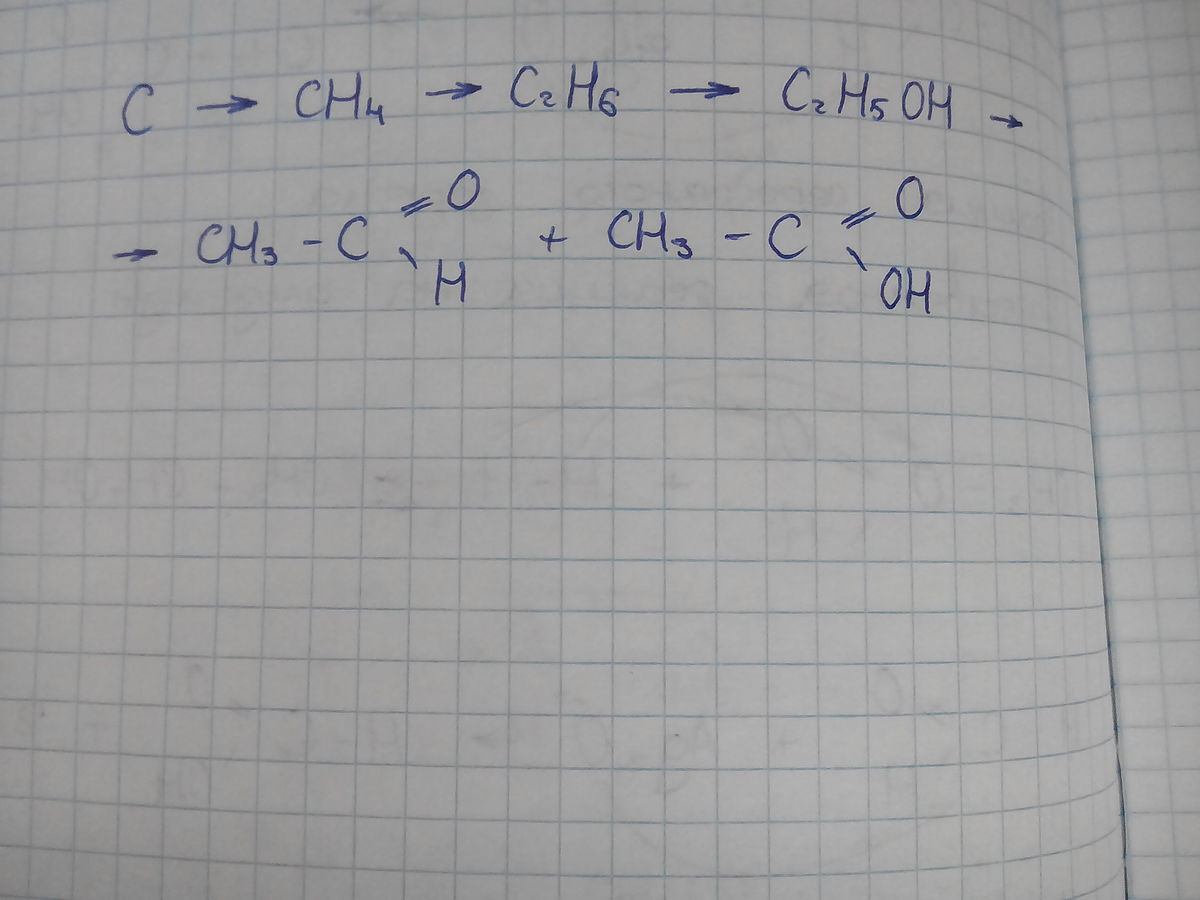 C → CH₄ → C₂H₆ → C₂H₅OH →
→ CH₃ - C = O \ H + CH₃ - C = O \ OH